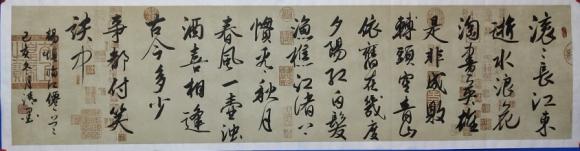 滚滚长江东
逝水浪花
淘尽英雄
是非成败
转头空青山
依旧在几度
夕阳红白发
渔樵江渚上
惯看秋月
春风一壶浊
酒喜相逢
古今多少
事都付笑
谈中
杨慎临江仙